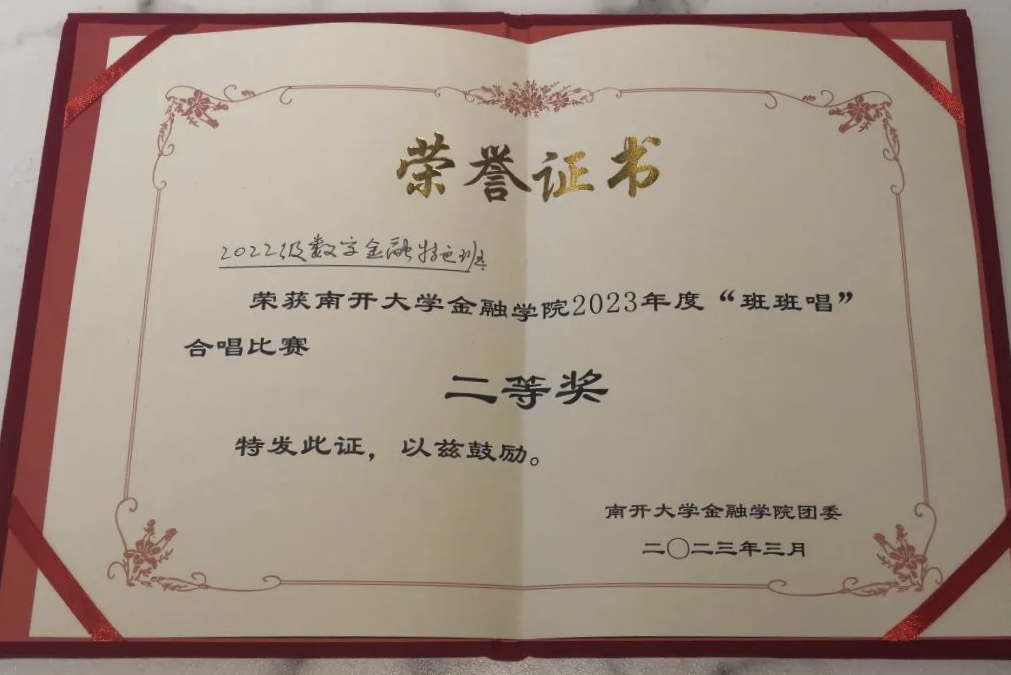 荣誉证书
2022级数字金融特色班
荣获南开大学金融学院2023年度“班班唱”
合唱比赛
二等奖
特发此证，以兹鼓励。
南开大学金融学院团委
二〇二三年三月